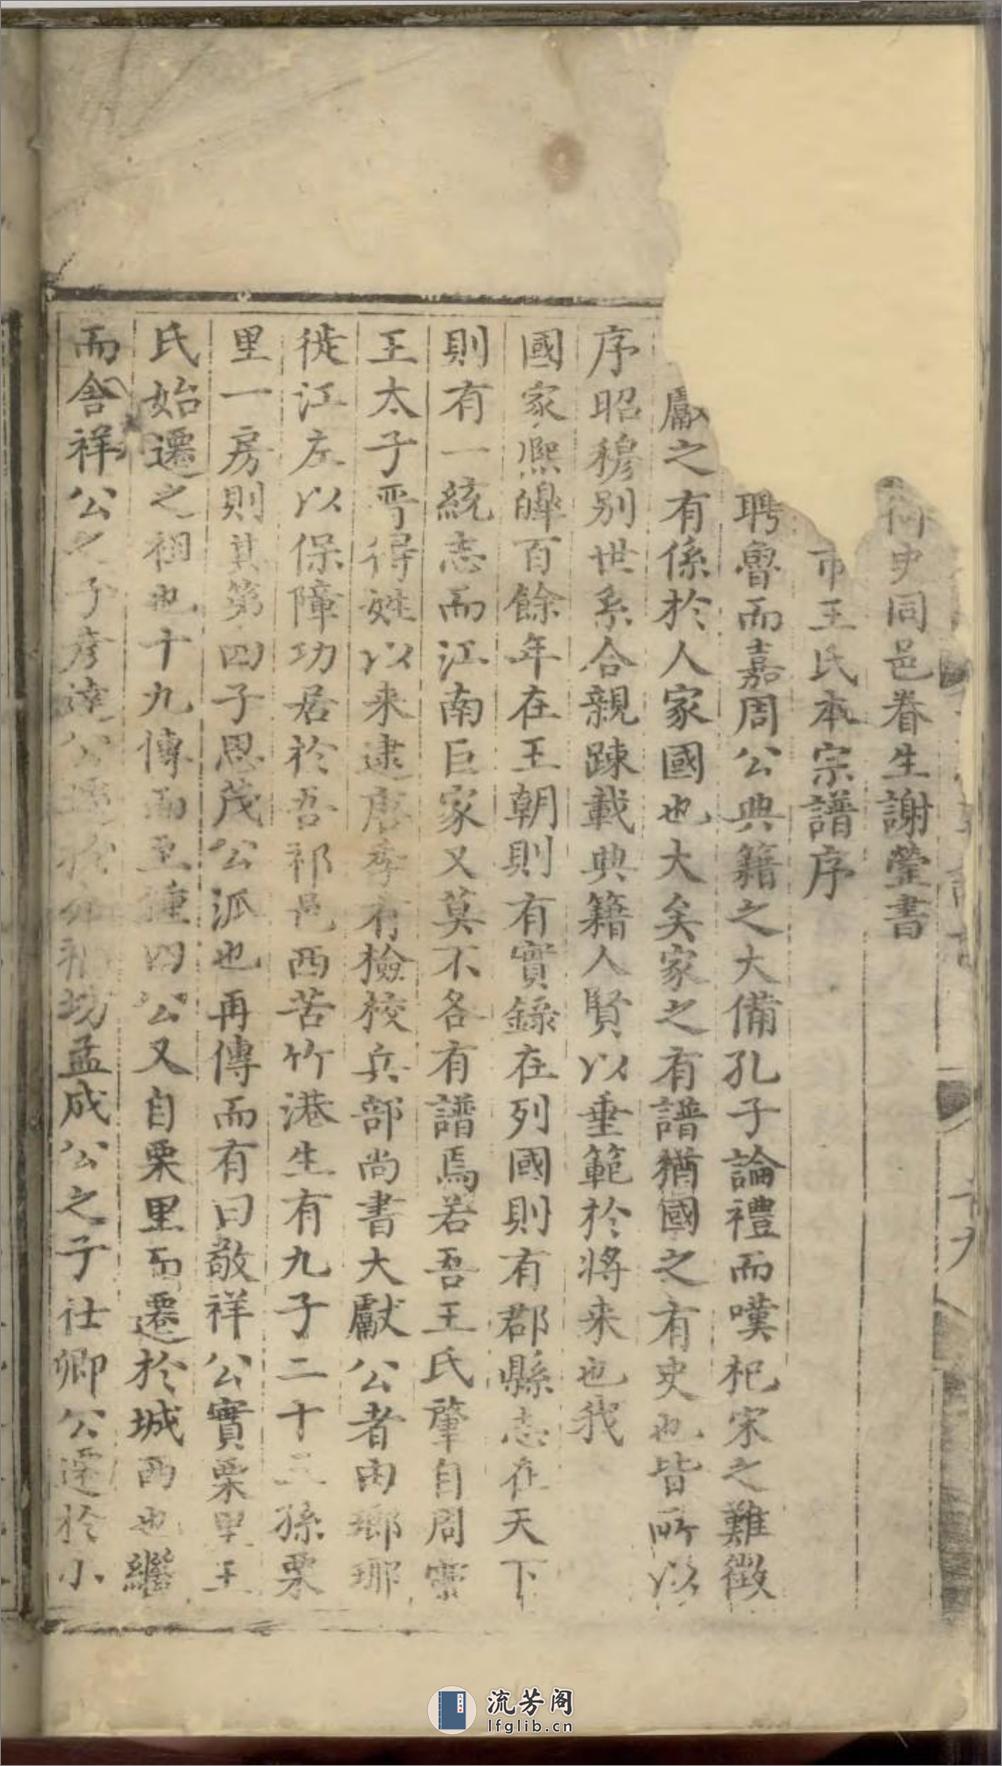 史同邑眷生謝瑩書
市王氏本宗譜序
聘魯而嘉周公典籍之大備孔子論禮而嘆杞宋之難徵
獻之有係於人家國也大矣家之有譜猶國之有史也皆所以
序昭穆別世系合親踈載典籍人賢以垂範於將來也我
國家熙皞百餘年在王朝則有實錄在列國則有郡縣志在天下
則有一統志而江南巨家又莫不各有譜焉若吾王氏肇自周靈
王太子晉得姓以來逮唐季有檢校兵部尚書大獻公者由瑯琊
徙江左以保障功居於吾祁邑西苦竹港生有九子二十三孫栗
里一房則其第四子思茂公派也再傳而有曰敬祥公實栗里王
氏始遷之祖也十九傳而至 四公又自栗里而遷於城西也繼
而舍祥公之子彥達公遷於 坊孟成公之子仕卿公遷於小
流芳阁
lfglib.cn